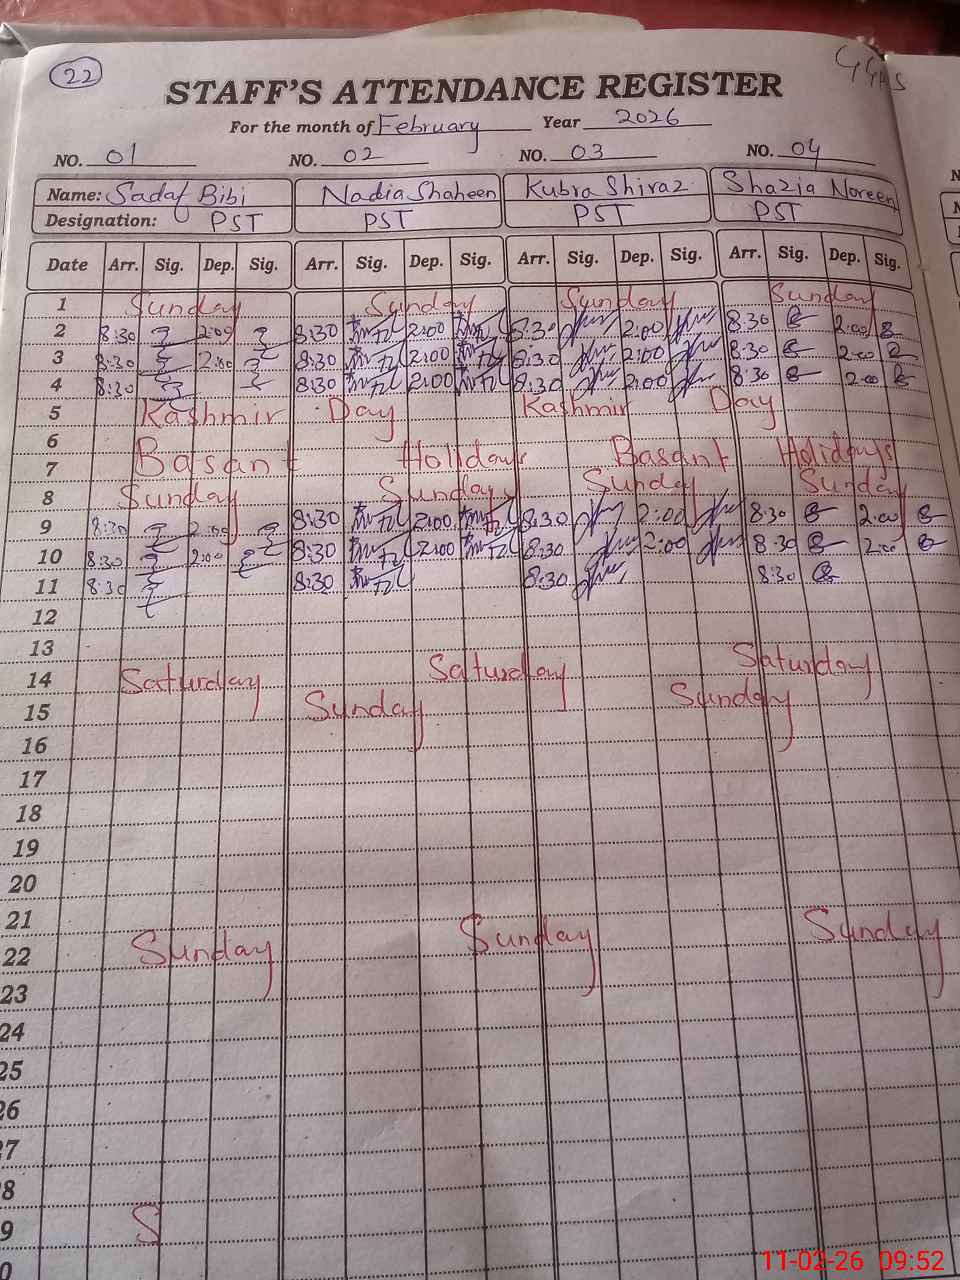 22
STAFF'S ATTENDANCE REGISTER
For the month of February Year 2026
NO. 01 NO. 02 NO. 03 NO. 04
Name: Sadaf Bibi Nadia Shaheen Kubra Shiraz Shazia Noreen
Designation: PST PST PST PST
Date Arr. Sig. Dep. Sig. Arr. Sig. Dep. Sig. Arr. Sig. Dep. Sig. Arr. Sig. Dep. Sig.
1 Sunday Sunday Sunday Sunday
2 8:30 2:00 8:30 2:00 8:30 2:00 8:30 2:00
3 8:30 2:00 8:30 2:00 8:30 2:00 8:30 2:00
4 8:30 8:30 2:00 8:30 2:00 8:30 2:00
5 Kashmir Day Kashmir Day
6
7 Basant Holidays Basant Holidays
8 Sunday Sunday Sunday Sunday
9 8:30 2:00 8:30 2:00 8:30 2:00 8:30 2:00
10 8:30 2:00 8:30 2:00 8:30 2:00 8:30 2:00
11 8:30 8:30 8:30 8:30
12
13
14 Saturday Saturday Saturday
15 Sunday Sunday
16
17
18
19
20
21
22 Sunday Sunday Sunday
23
24
25
26
27
28
29 S
11-02-26 09:52